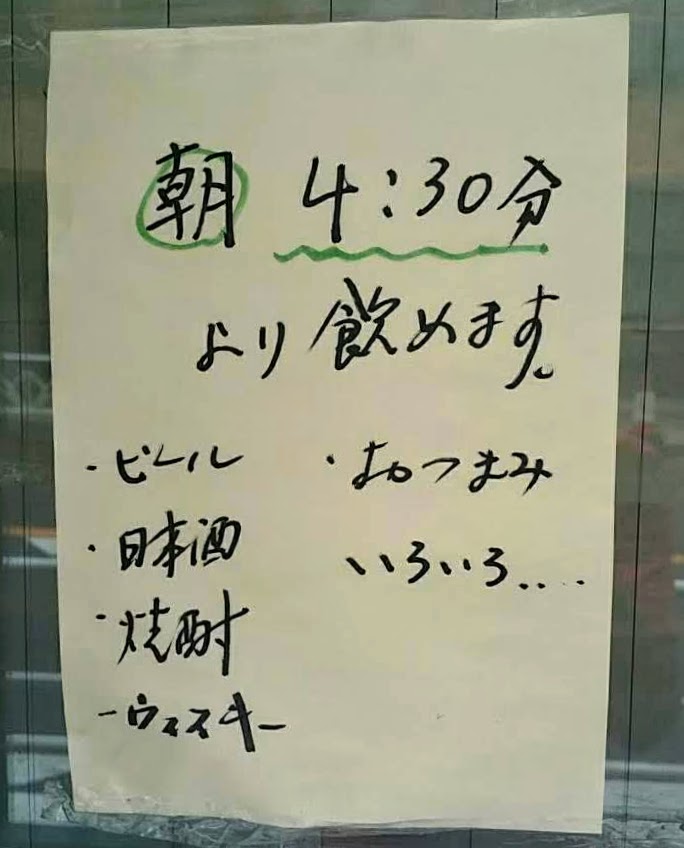 朝 4:30分
より飲めます。
・ビール
・日本酒
・焼酎
-ウィスキー
・おつまみ
いろいろ....